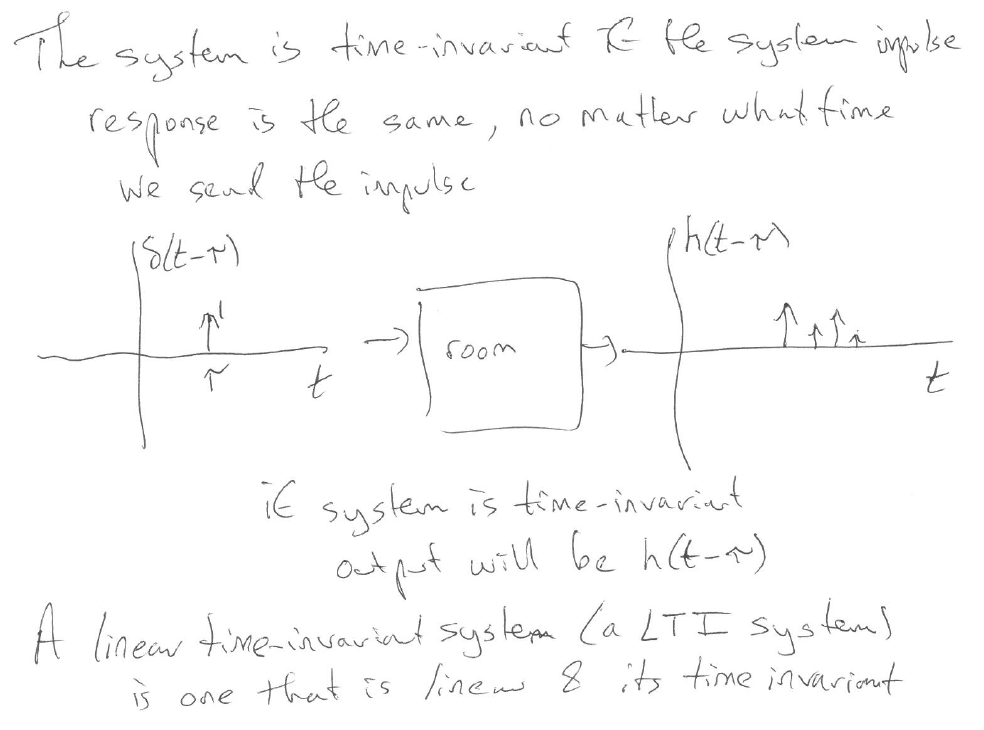 The system is time-invariant if the system impulse
response is the same, no matter what time
we send the impulse
δ(t-τ)
h(t-τ)
1
room
τ
t
t
if system is time-invariant
output will be h(t-τ)
A linear time-invariant system (a LTI system)
is one that is linear & its time invariant